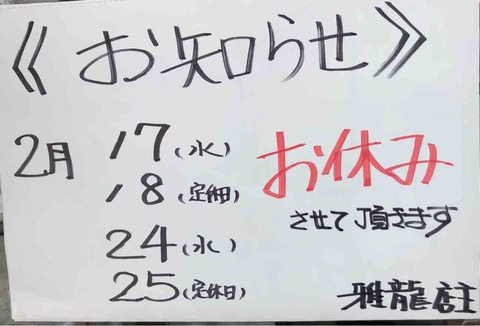 《お知らせ》
2月 17(水) お休み
18(定休日)
させて頂きます
24(水)
25(定休日)
雅龍 店主